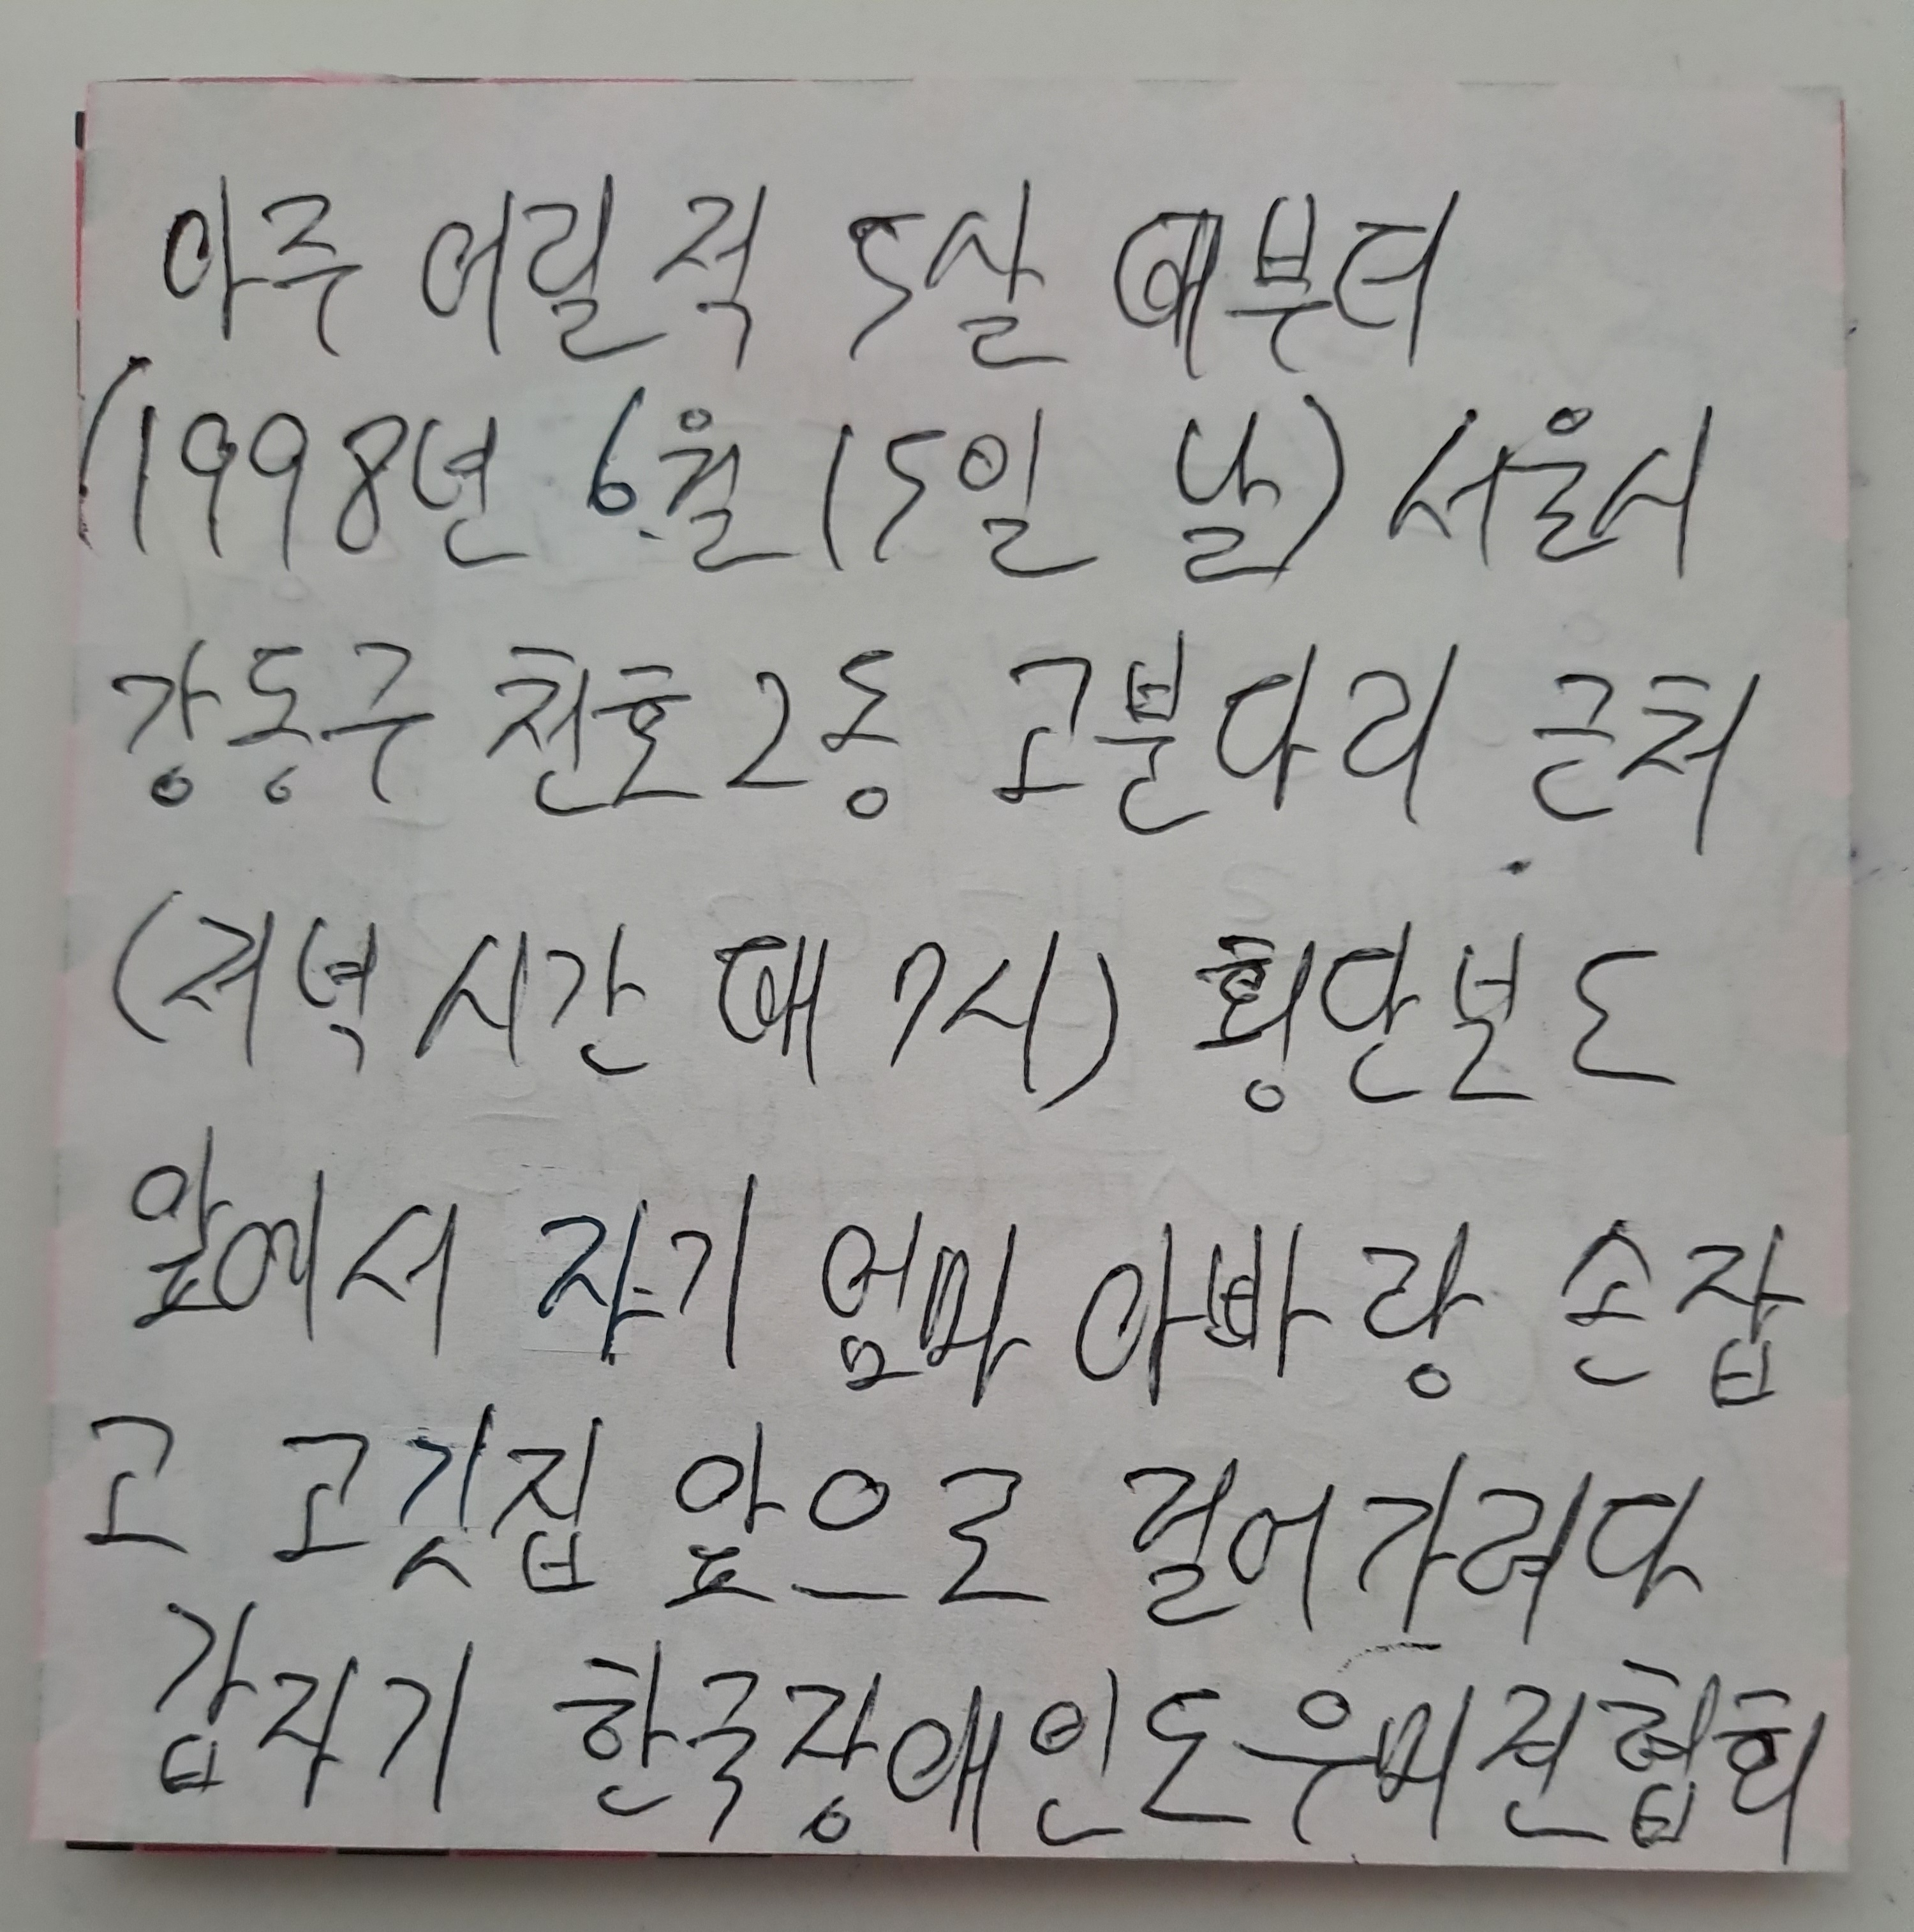 아주 어릴 적 5살 때부터
(1998년 6월 15일 날) 서울시
강동구 천호2동 고분다리 근처
(저녁 시간 때 7시) 횡단보도
앞에서 자기 엄마 아빠랑 손잡
고 고깃집 앞으로 걸어가려다
갑자기 한국장애인도우미견협회